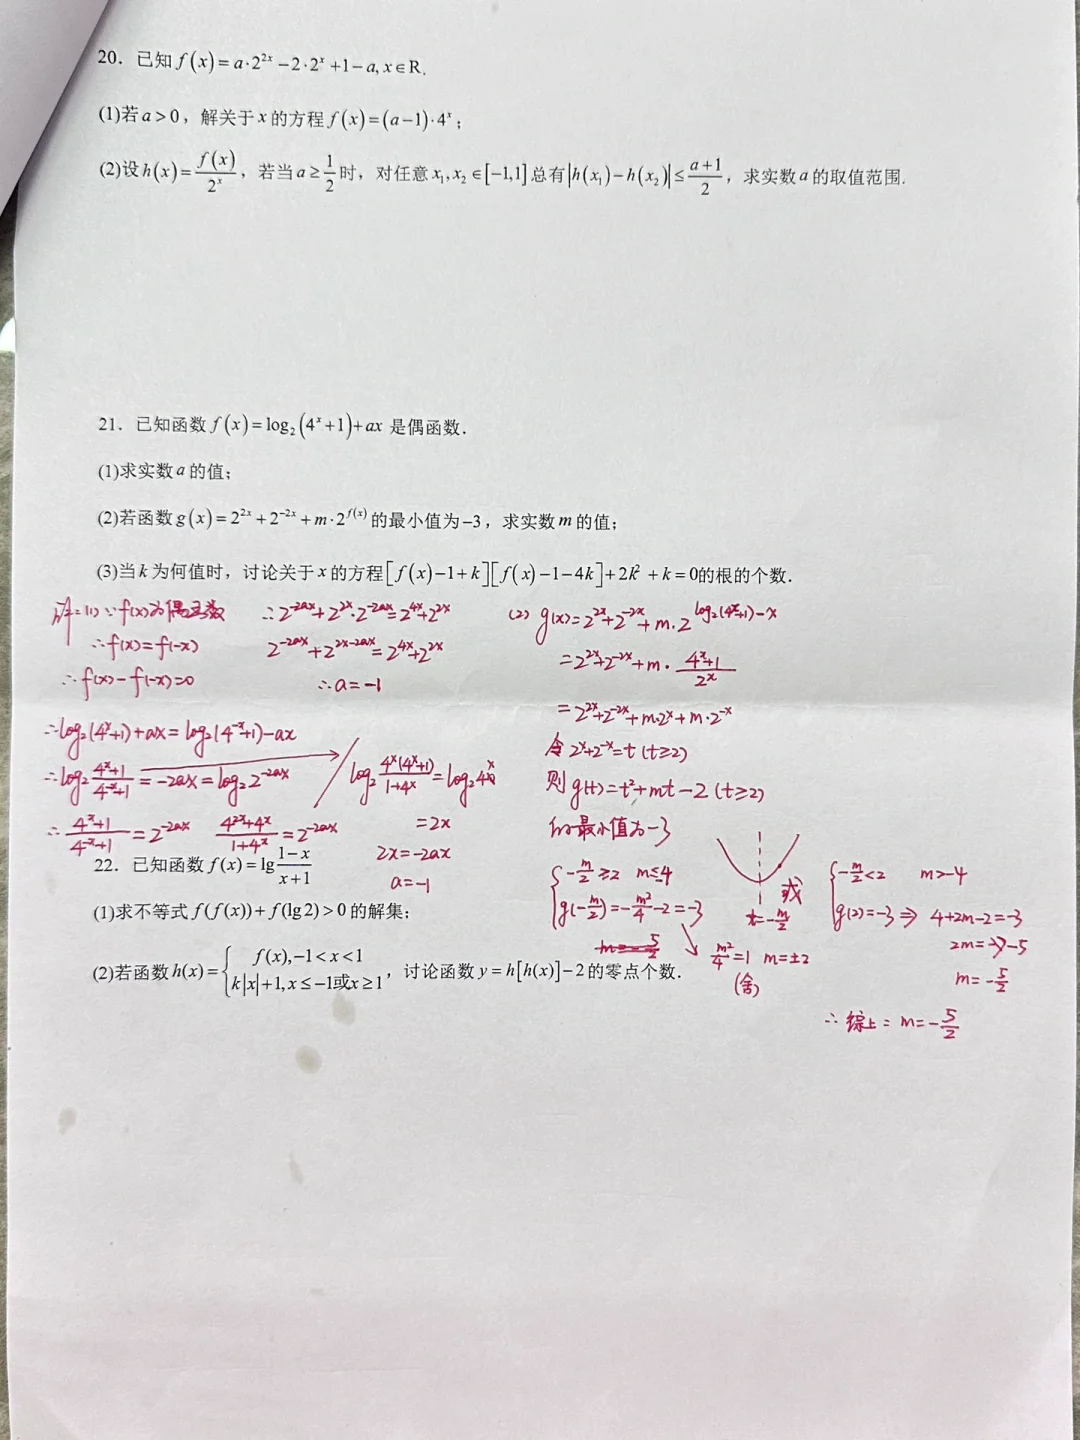 20. 已知 f(x)=a·2^{2x}-2·2^x+1-a, x∈R.
(1)若a>0，解关于x的方程f(x)=(a-1)·4^x；
(2)设h(x)=f(x)/2^x，若当a≥1/2时，对任意x₁,x₂∈[-1,1]总有|h(x₁)-h(x₂)|≤(a+1)/2，求实数a的取值范围.
21. 已知函数f(x)=log₂(4^x+1)+ax 是偶函数.
(1)求实数a的值；
(2)若函数g(x)=2^{2x}+2^{-2x}+m·2^{f(x)}的最小值为-3，求实数m的值；
(3)当k为何值时，讨论关于x的方程[f(x)-1+k][f(x)-1-4k]+2k²+k=0的根的个数.
解=(1)∵f(x)为偶函数
∴f(x)=f(-x)
∴f(x)-f(-x)=0
∴log₂(4^x+1)+ax=log₂(4^{-x}+1)-ax
∴log₂(4^x+1)/(4^{-x}+1)=-2ax=log₂2^{-2ax}
∴(4^x+1)/(4^{-x}+1)=2^{-2ax} (4^{2x}+4^x)/(1+4^x)=2^{-2ax}
∴2^{-2ax}+2^{2x}·2^{-2ax}=2^{4x}+2^{2x}
2^{-2ax}+2^{2x-2ax}=2^{4x}+2^{2x}
∴a=-1
log₂4^x(4^x+1)/(1+4^x)=log₂4^x
=2x
2x=-2ax
a=-1
(2) g(x)=2^{2x}+2^{-2x}+m·2^{log₂(4^x+1)-x}
=2^{2x}+2^{-2x}+m·(4^x+1)/2^x
=2^{2x}+2^{-2x}+m·2^x+m·2^{-x}
令2^x+2^{-x}=t(t≥2)
则g(t)=t²+mt-2(t≥2)
的最小值为-3
{-m/2≥2 m≤-4
g(-m/2)=-m²/4-2=-3
m²/4=1 m=±2
(舍)
t=-m/2
或
{-m/2<2 m>-4
g(2)=-3⇒4+2m-2=-3
2m=-5
m=-5/2
∴综上=m=-5/2
22. 已知函数f(x)=lg(1-x)/(x+1)
(1)求不等式f(f(x))+f(lg2)>0的解集；
(2)若函数h(x)={f(x),-1<x<1
k|x|+1,x≤-1或x≥1，讨论函数y=h[h(x)]-2的零点个数.